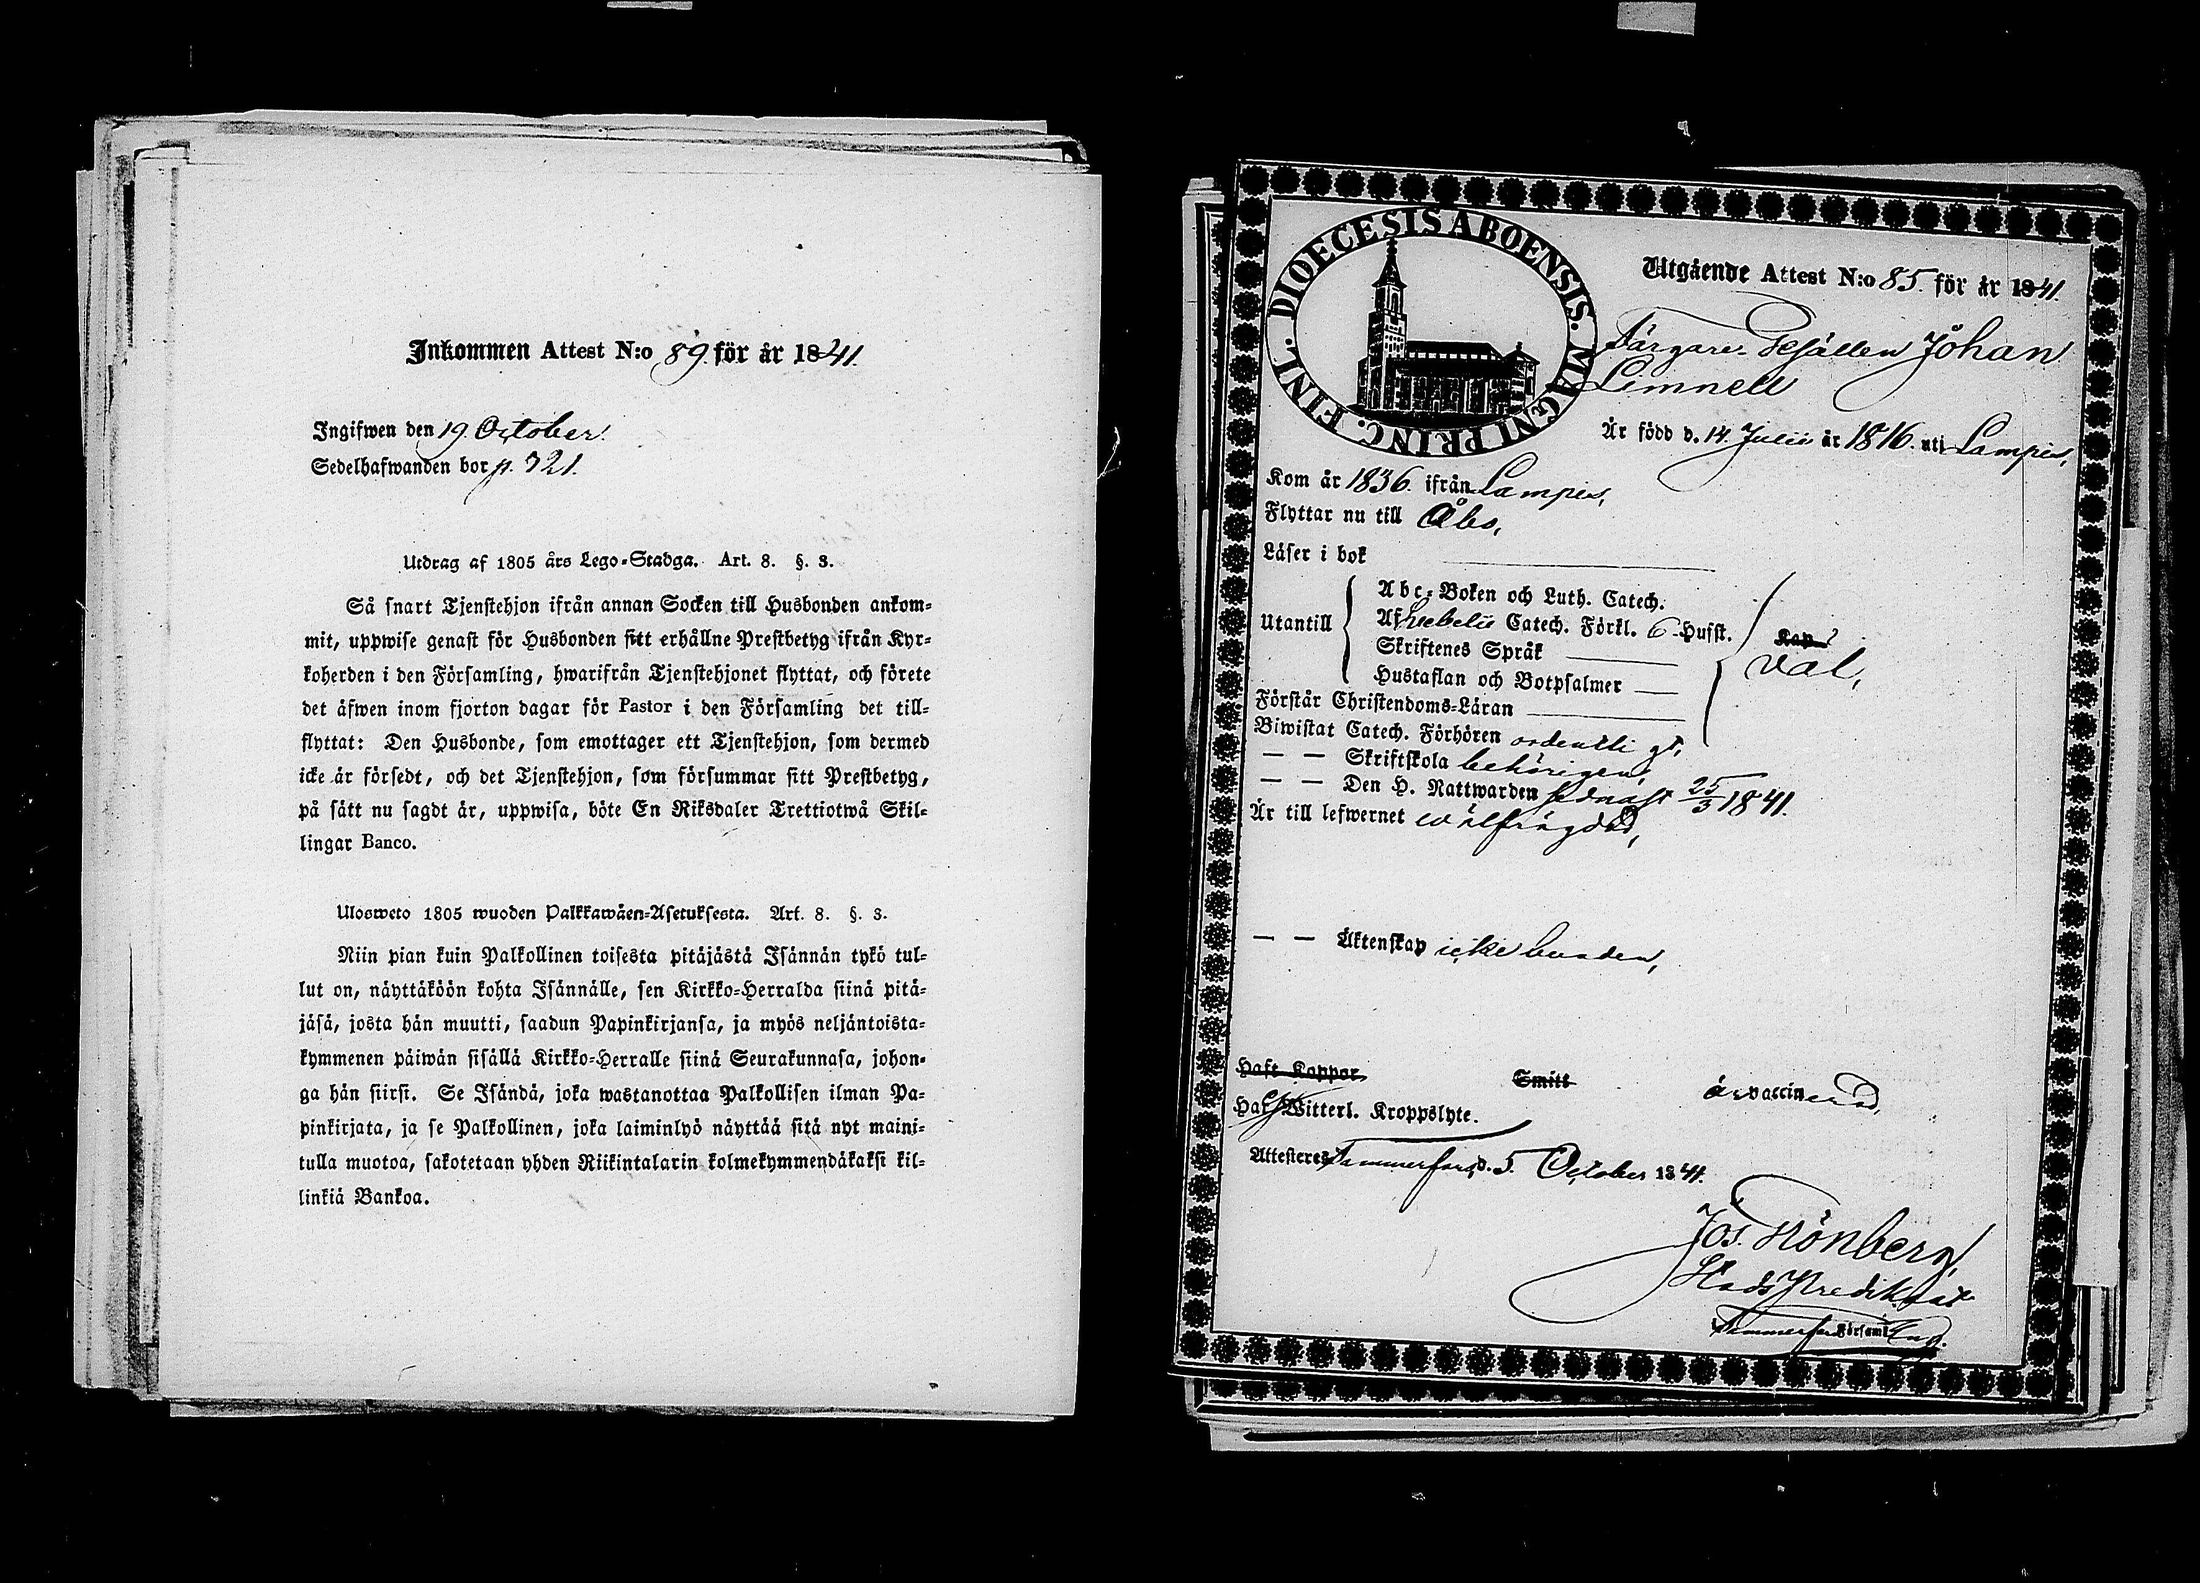 Inkommen Attest N:o 89. för år 1841.
Ingifwen den 19. October.
Sedelhafwanden bor p. 321.
Utdrag af 1805 års Lego-Stadga. Art. 8. §. 3.
Så snart Tjenstehjon ifrån annan Socken till Husbonden ankom-
mit, uppwise genast för Husbonden sitt erhållne Prestbetyg ifrån Kyr-
koherden i den Församling, hwarifrån Tjenstehjonet flyttat, och förete
det äfwen inom fjorton dagar för Pastor i den Församling det till-
flyttat: Den Husbonde, som emottager ett Tjenstehjon, som dermed
icke är försedt, och det Tjenstehjon, som försummar sitt Prestbetyg,
på sätt nu sagdt är, uppwisa, böte En Riksdaler Trettiotwå Skil-
lingar Banco.
Ulosweto 1805 wuoden Palkkawäen-Asetuksesta. Art. 8. §. 3.
Niin pian kuin Palkollinen toisesta pitäjästä Isännän tykö tul-
lut on, näyttäköön kohta Isännälle, sen Kirkko-Herralda siinä pitä-
jäsä, josta hän muutti, saadun Papinkirjansa, ja myös neljäntoista-
kymmenen päiwän sisällä Kirkko-Herralle siinä Seurakunnasa, johon-
ga hän siirsi. Se Isändä, joka wastanottaa Palkollisen ilman Pa-
pinkirjata, ja se Palkollinen, joka laiminlyö näyttää sitä nyt maini-
tulla muotoa, sakotetaan yhden Riikintalarin kolmekymmendäkaksi kil-
linkiä Bankoa.
DIOECESIS ABOENSIS. MAGNI PRINC. FINL.
Utgående Attest N:o 85. för år 1841.
Färgare-Gesällen Johan
Limnell
Är född d. 14. Julii år 1816. uti Lampis,
Kom år 1836. ifrån Lampis,
Flyttar nu till Åbo,
Läser i bok
Utantill
Abc-Boken och Luth. Catech.
Af Svebelii Catech. Förkl. 6 Hufst.
Skriftenes Språk
Hustaflan och Botpsalmer
Kap.
väl,
Förstår Christendoms-Läran
Biwistat Catech. Förhören ordentligt,
— — Skriftskola behörigen,
— — Den H. Nattwarden sednast 25/3 1841.
Är till lefwernet wälfrägdad,
— — Äktenskap icke bunden,
Haft Koppor Smitt är vaccinerad,
Har Witterl. Kroppslyte.
Attesteres Tammerfors d. 5. October 1841.
Jos. Grönberg,
Stads Predikant
Tammerfors Församl.